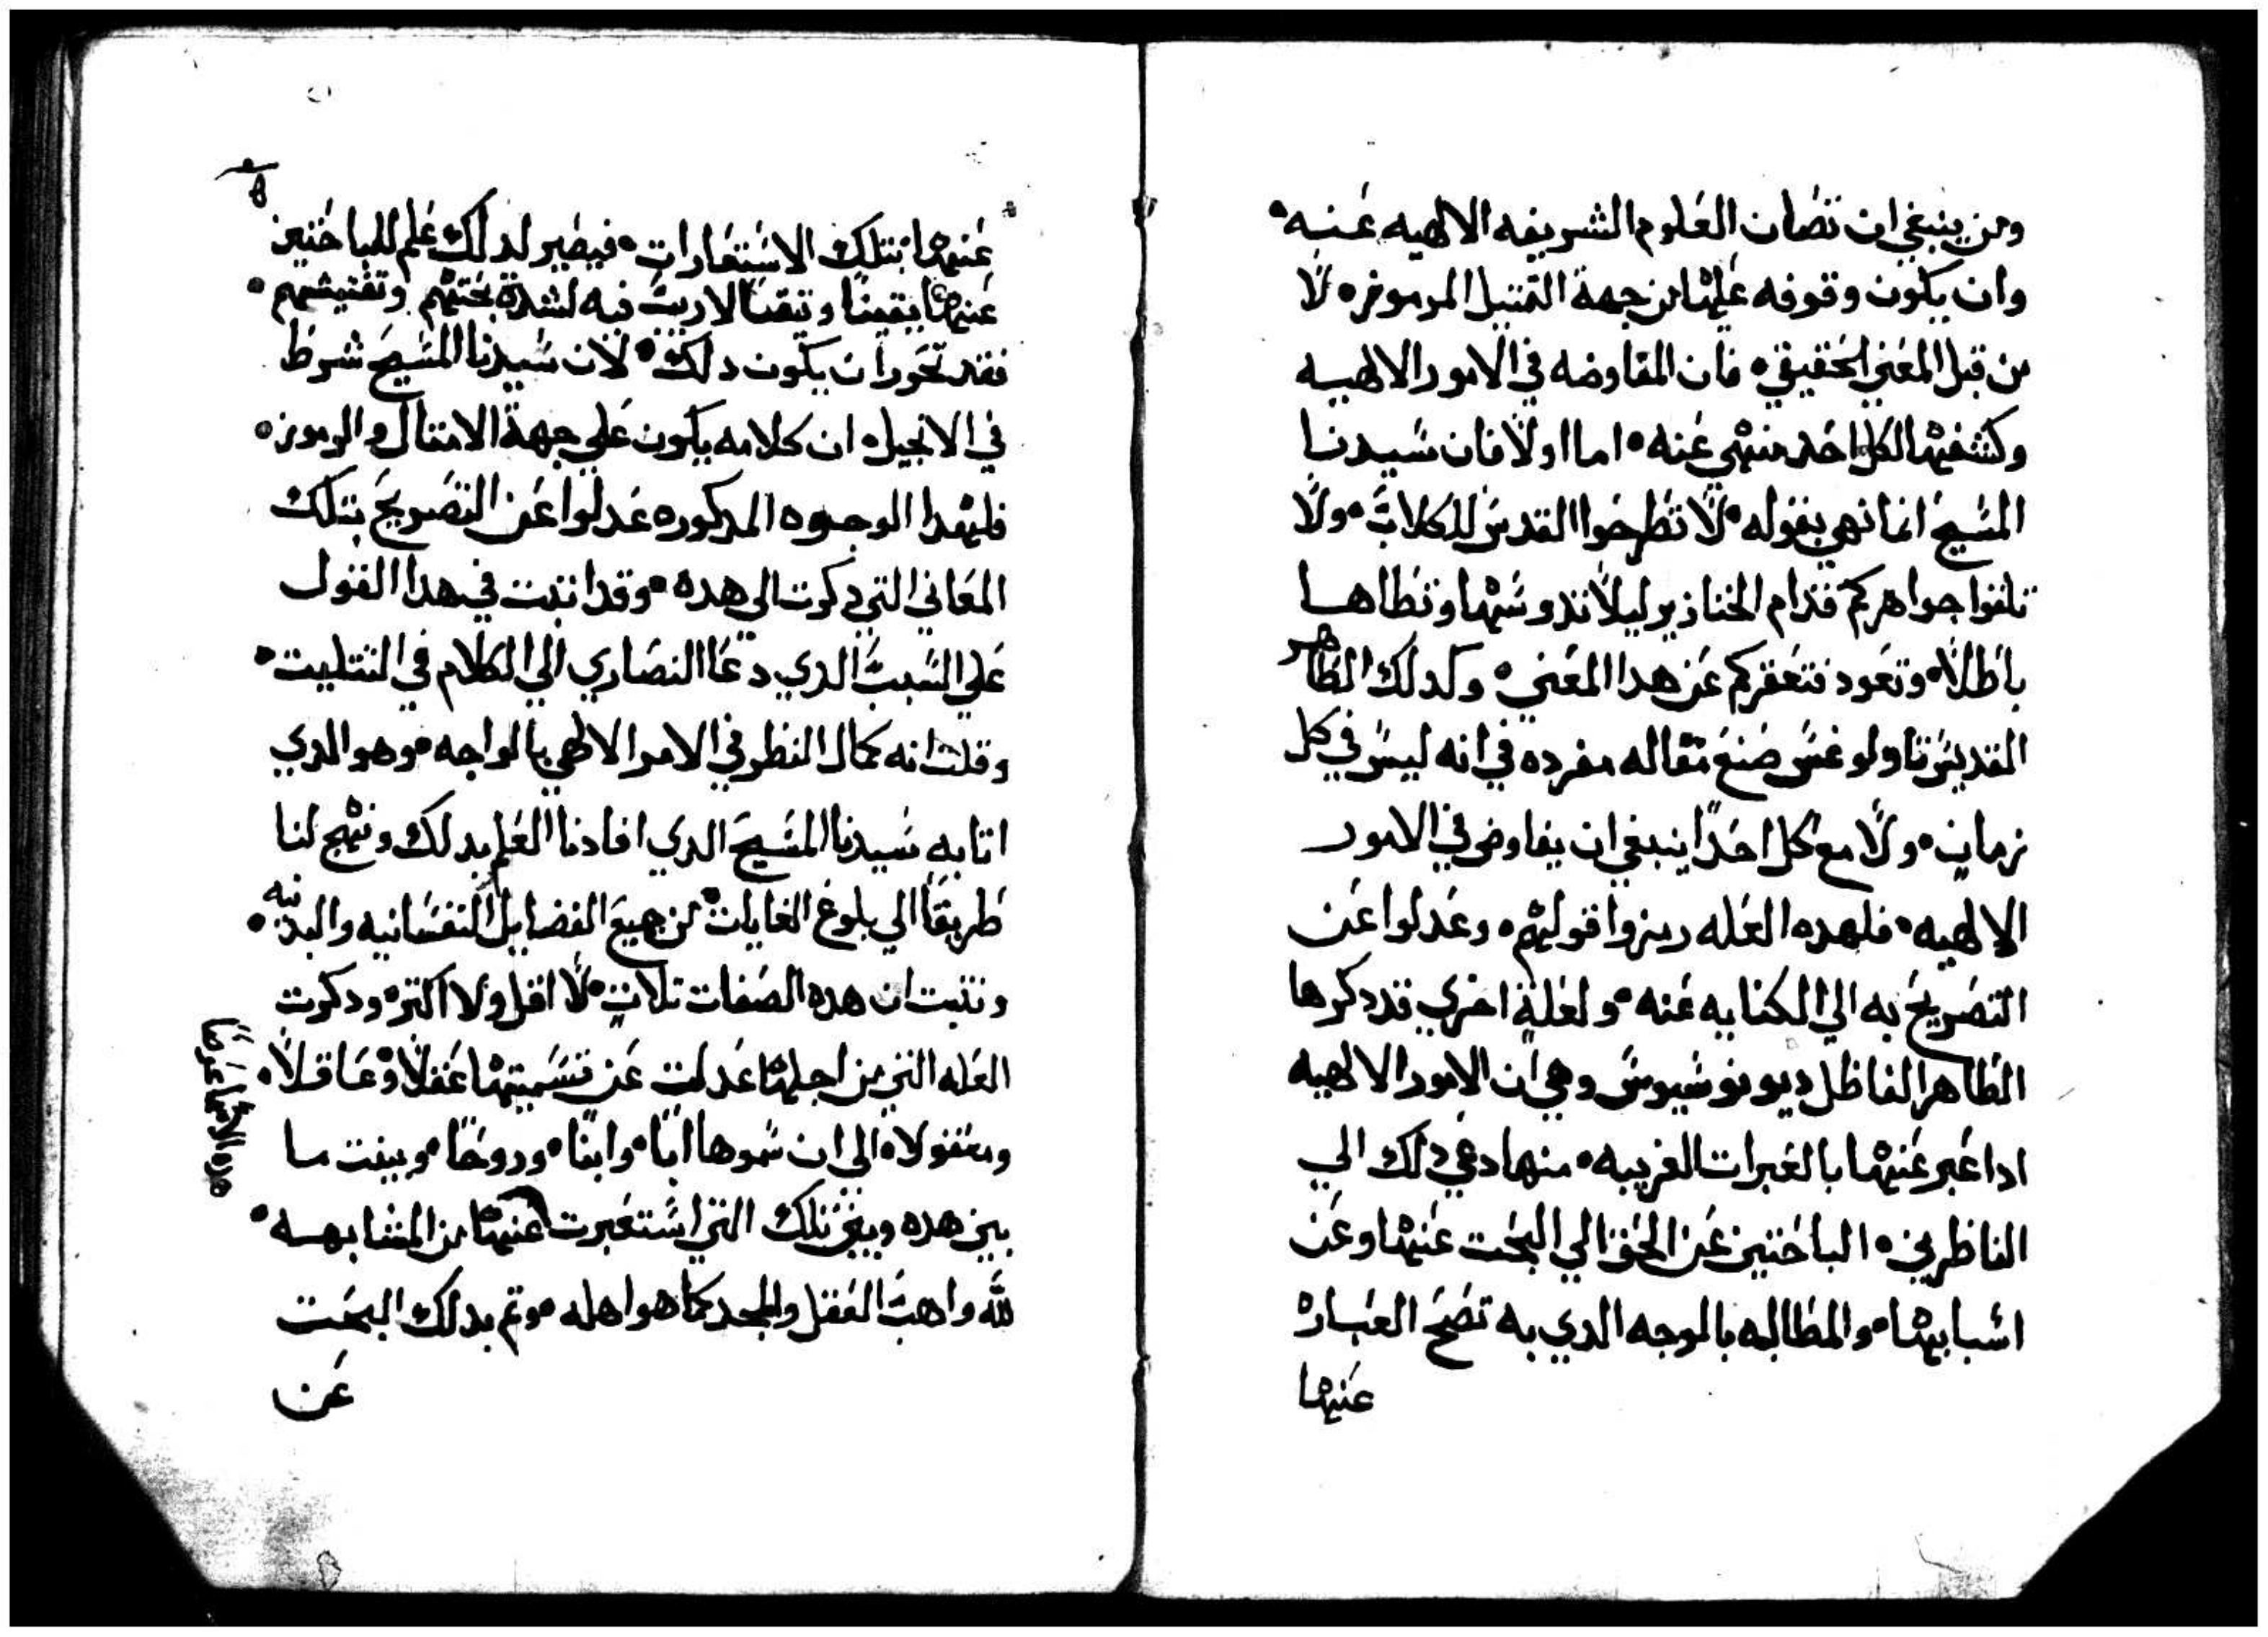 ومن ينبغي ان تصان العلوم الشريفه الالهيه عنه
وان يكون وقوفه عليها من جهة التمتيل المرموز لا
من قبل المعني الحقيقي فان المفاوضه في الامور الالهيه
وكشفها لكل احد منهي عنه اما اولا فان سيدنا
المسيح انما نهي بقوله لا تطرحوا القدس للكلاب ولا
تلقوا جواهركم قدام الخنازير ليلا تدوسها وتطاها
باطلا وتعود فتعقركم عن هدا المعني وكدلك الطاهر
القديس تاولوغس صنع مقاله مفرده في انه ليس في كل
زمان ولا مع كل احدا ينبغي ان يفاوض في الامور
الالهيه فلهده العله رمزوا قولهم وعدلوا عن
التصريح به الي الكنايه عنه ولعلة اخري قد دكرها
الطاهر الفاظل ديونوسيوس وهي ان الامور الالهيه
ادا عبر عنها بالعبرات الغريبه منها دعي دلك الي
الناظرين الباحتين عن الحق الي البحت عنها وعن
اسبابها والمطالبه بالوجه الدي به تصح العباره
عنها
عنها بتلك الاستعارات فيصير لدلك علم للباحتين
عنها يقينا وتيقنا لا ريب فيه لشدة بحتهم وتفتيشهم
فقد تحور ان يكون دلك لان سيدنا المسيح شرط
في الانجيل ان كلامه يكون علي جهة الامتال والرموز
فلهدا الوجوه المدكوره عدلوا عن التصريح بتلك
المعاني التي دكرت الي هده وقد اتيت في هدا القول
علي السبب الدي دعا النصاري الي الكلام في التتليت
وقلت انه كمال النظر في الامر الالهي بالواجه وهو الدي
اتا به سيدنا المسيح الدي افادنا العلم بدلك ونهج لنا
طريقا الي بلوغ الغايات من جميع الفضايل النفسانيه والبدنيه
وتتبت ان هده الصفات تلات لا اقل ولا اكتر ودكرت
العله التي من اجلها عدلت عن تسميتها عقلا وعاقلا
ومعقولا الي ان سموها ابا وابنا وروحا وبينت ما
بين هده وبين تلك التي استعبرت عنها من المشابهه
لله واهب العقل والمجد كما هو اهله وتم بدلك البحت
عن